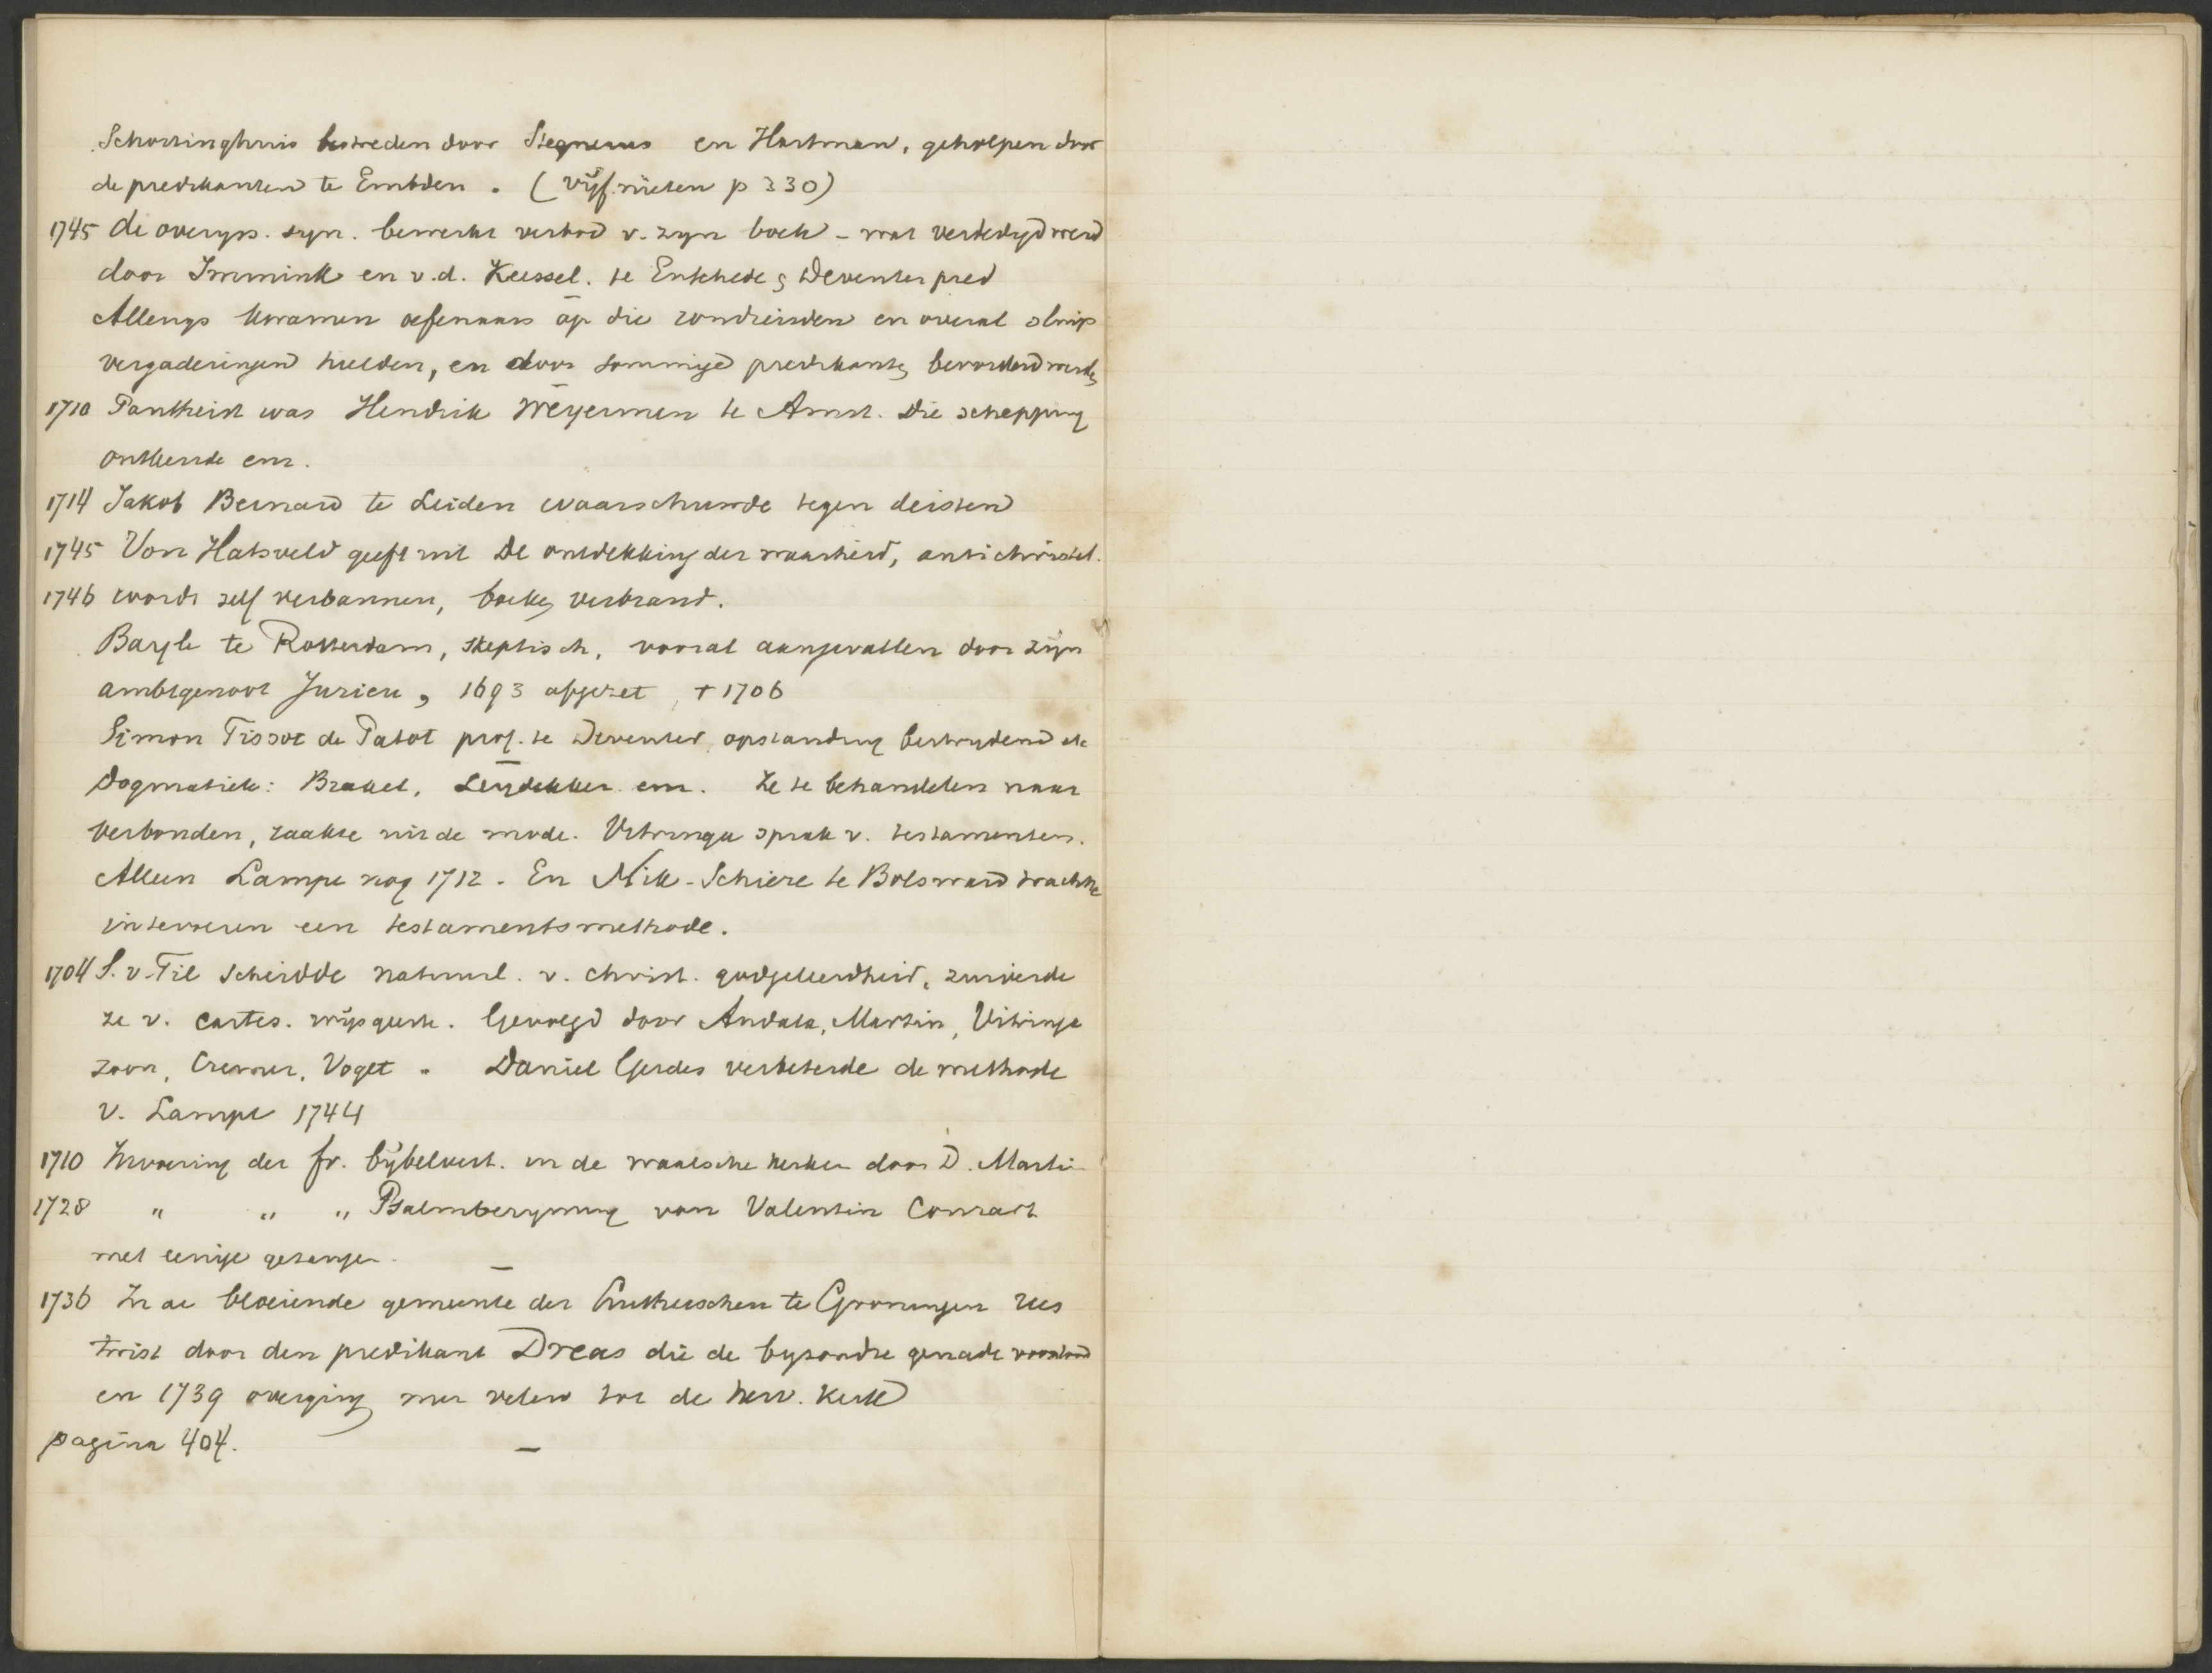 Schortinghuis bestreden door Stegnerus en Hartman, geholpen door
de predikanten te Embden. (vijf nieten p 330)
1745 de overyss. syn. bewerkt verbod v. zyn boek - wat verdedigd werd
door Immink en v.d. Keessel. te Enschede & Deventer pred
Allengs kwamen oefenaars op die rondreisden en overal
vergaderingen hielden, en door sommige predikanten bevorderd werden
1710 Pantheist was Hendrik Weyerman te Amst. die schepping
ontkende enz.
1714 Jakob Bernard te Leiden waarschuwde tegen deisten
1745 Von Hatsveld geeft uit De ontdekking der waarheid, antichristel.
1746 wordt zelf verbannen, boeken verbrand.
Bayle te Rotterdam, skeptisch, vooral aangevallen door zijn
ambtgenoot Jurieu, 1693 afgezet, + 1706
Simon Tissot de Patot prof. te Deventer, opstanding bestrydend etc
Dogmatiek: Brakel, Leydekker enz. Ze te behandelen naar
verbonden, raakte uit de mode. Vitringa sprak v. testamenten.
Alleen Lampe nog 1712. En Nik. Schiere te Bolsward trachtte
intevoeren een testamentsmethode.
1704 S. v. Til scheidde natuurl. v. christ. godgeleerdheid, zuiverde
ze v. cartes. wijsgeerte. Gevolgd door Andala, Martin, Vitringa
zoon, Cremer, Voget. Daniel Gerdes verbeterde de methode
v. Lampe 1744
1710 Invoering der fr. bijbelvert. in de waalsche kerken door D. Martin
1728 " " " Psalmberyming van Valentin Conrart
met eenige gezangen.
1736 In de bloeiende gemeente der Lutherschen te Groningen rees
twist door den predikant Dreas die de byzondre genade voorstond
en 1739 overging met velen tot de herv. kerk
pagina 404.